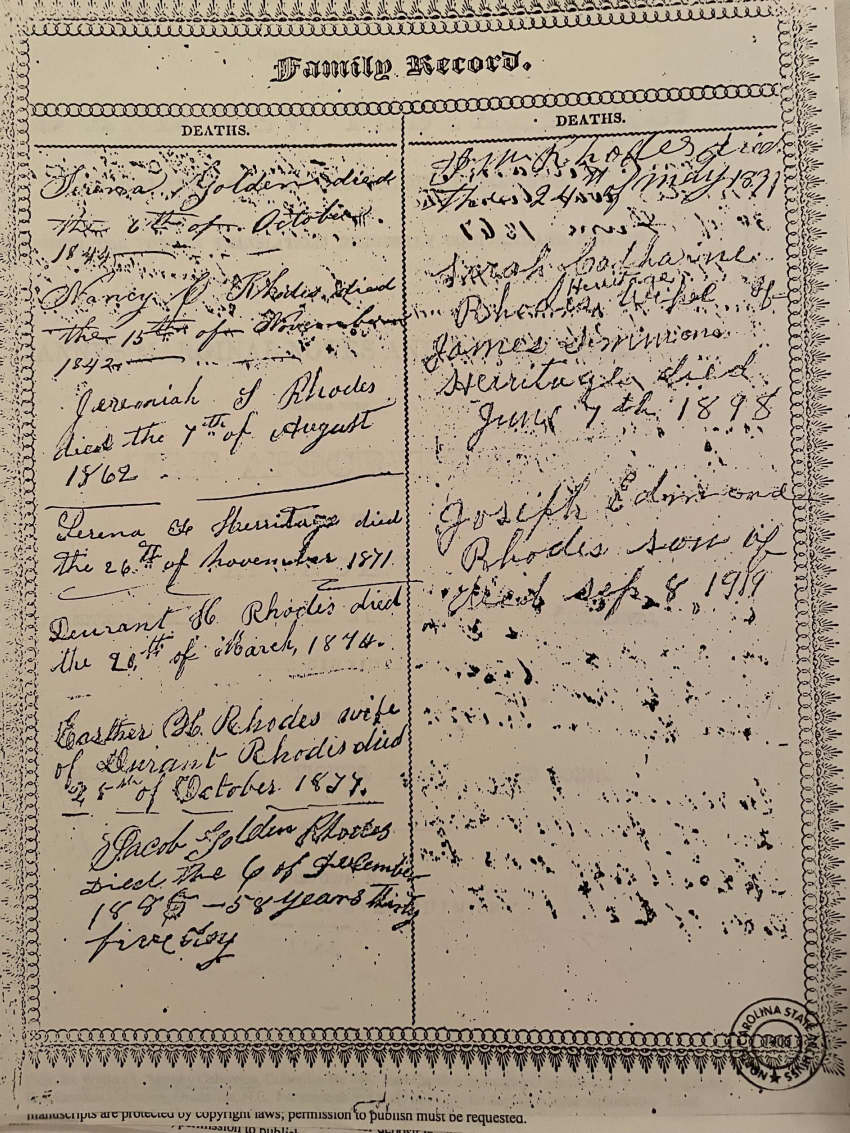 Family Record.
DEATHS.
Golden died
the 6th of October
1844
Nancy Rhodes died
the 15th of November
1842
Jeremiah S Rhodes
died the 7th of August
1862
Herritage died
the 26th of November 1871
Durant H. Rhodes died
the of March, 1874.
Easther H. Rhodes wife
of Durant Rhodes died
of October 1877.
Jacob Golden Rhodes
Died The 6 of December
188 – 58 years thirty
five Day
DEATHS.
Rhodes died
the 24th of May 1891
1867
Sarah Catharine
Heritage
Rhodes of
James Simmons
Herritage died
June 7th 1898
Joseph Edmond
Rhodes son of
died sep. 8 1919
CAROLINA STATE
manuscripts are protected by copyright laws; permission to publish must be requested.
permission to publish